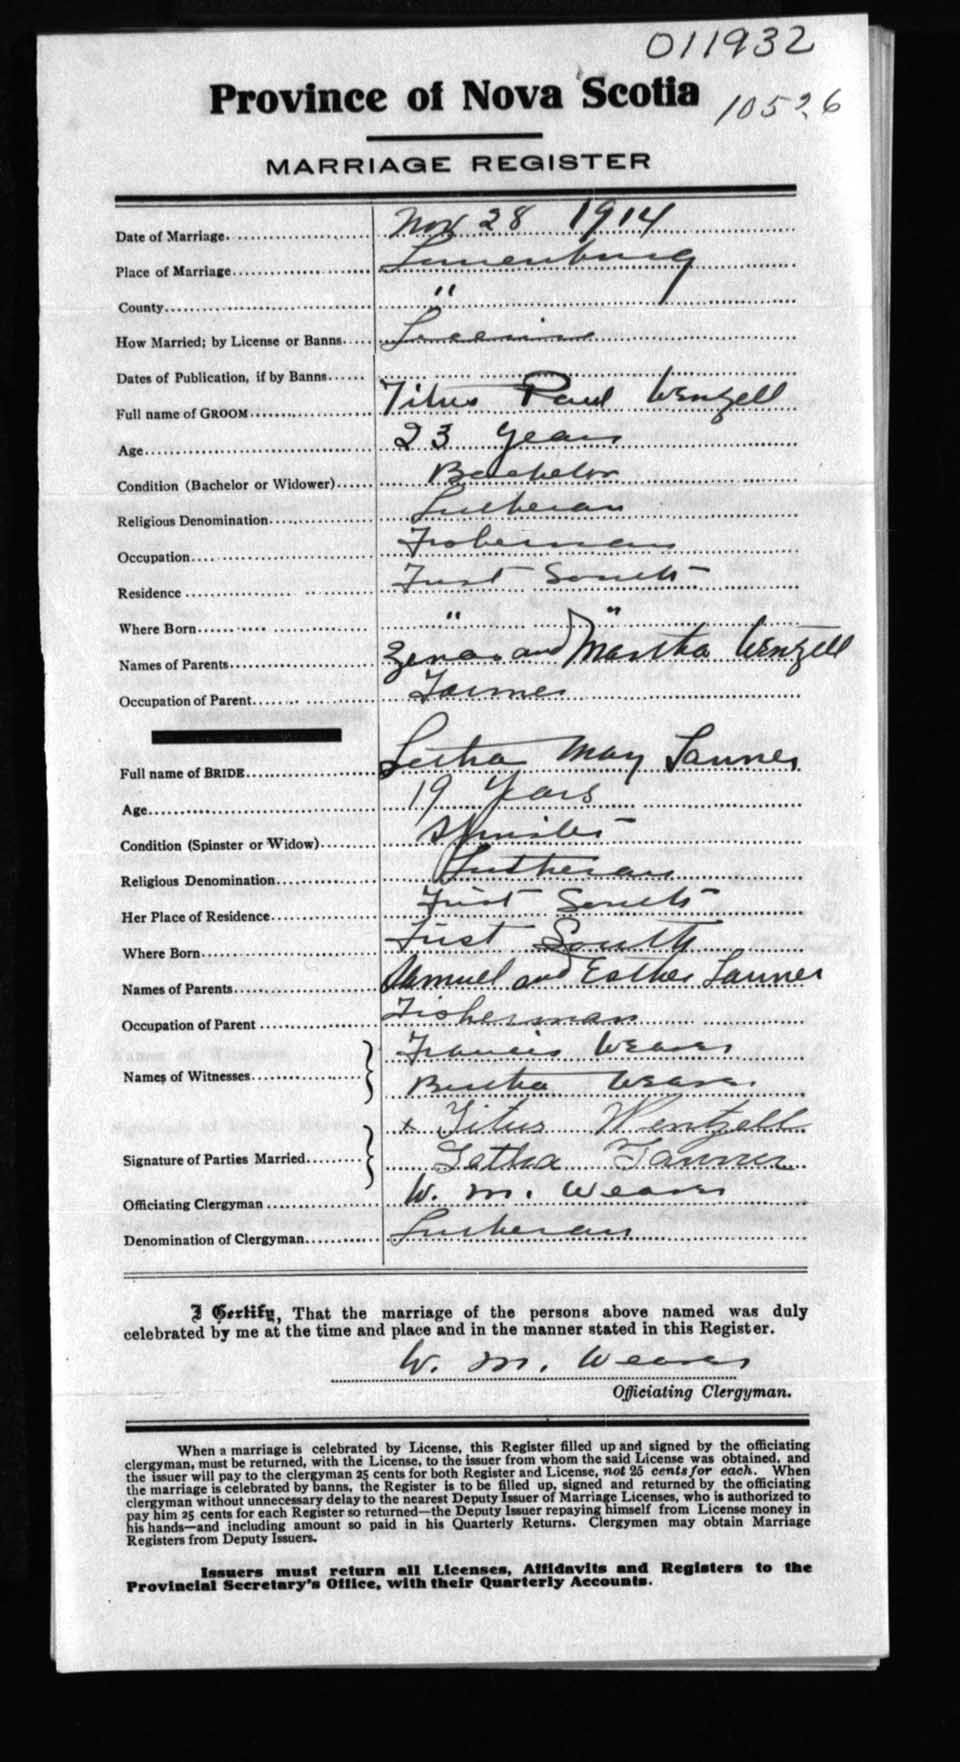 011932
Province of Nova Scotia
10526
MARRIAGE REGISTER
Date of Marriage Nov 28 1914
Place of Marriage Lunenburg
County " 
How Married; by License or Banns License
Dates of Publication, if by Banns
Full name of GROOM Titus Paul Wentzell
Age 23 years
Condition (Bachelor or Widower) Bachelor
Religious Denomination Lutheran
Occupation Fisherman
Residence First South
Where Born " "
Names of Parents Zenas and Martha Wentzell
Occupation of Parent Farmer
Full name of BRIDE Letha May Tanner
Age 19 Years
Condition (Spinster or Widow) Spinster
Religious Denomination Lutheran
Her Place of Residence First South
Where Born First South
Names of Parents Samuel and Esther Tanner
Occupation of Parent Fisherman
Names of Witnesses Francis Weaver
Bertha Weaver
Signature of Parties Married x Titus Wentzell
Letha Tanner
Officiating Clergyman W. M. Weaver
Denomination of Clergyman Lutheran
I Certify, That the marriage of the persons above named was duly
celebrated by me at the time and place and in the manner stated in this Register.
W. M. Weaver
Officiating Clergyman.
When a marriage is celebrated by License, this Register filled up and signed by the officiating
clergyman, must be returned, with the License, to the issuer from whom the said License was obtained, and
the issuer will pay to the clergyman 25 cents for both Register and License, not 25 cents for each. When
the marriage is celebrated by banns, the Register is to be filled up, signed and returned by the officiating
clergyman without unnecessary delay to the nearest Deputy Issuer of Marriage Licenses, who is authorized to
pay him 25 cents for each Register so returned—the Deputy Issuer repaying himself from License money in
his hands—and including amount so paid in his Quarterly Returns. Clergymen may obtain Marriage
Registers from Deputy Issuers.
Issuers must return all Licenses, Affidavits and Registers to the
Provincial Secretary's Office, with their Quarterly Accounts.